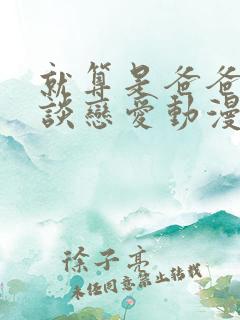 就算是爸爸
談戀愛動漫
徐子亮
未經同意禁止轉載